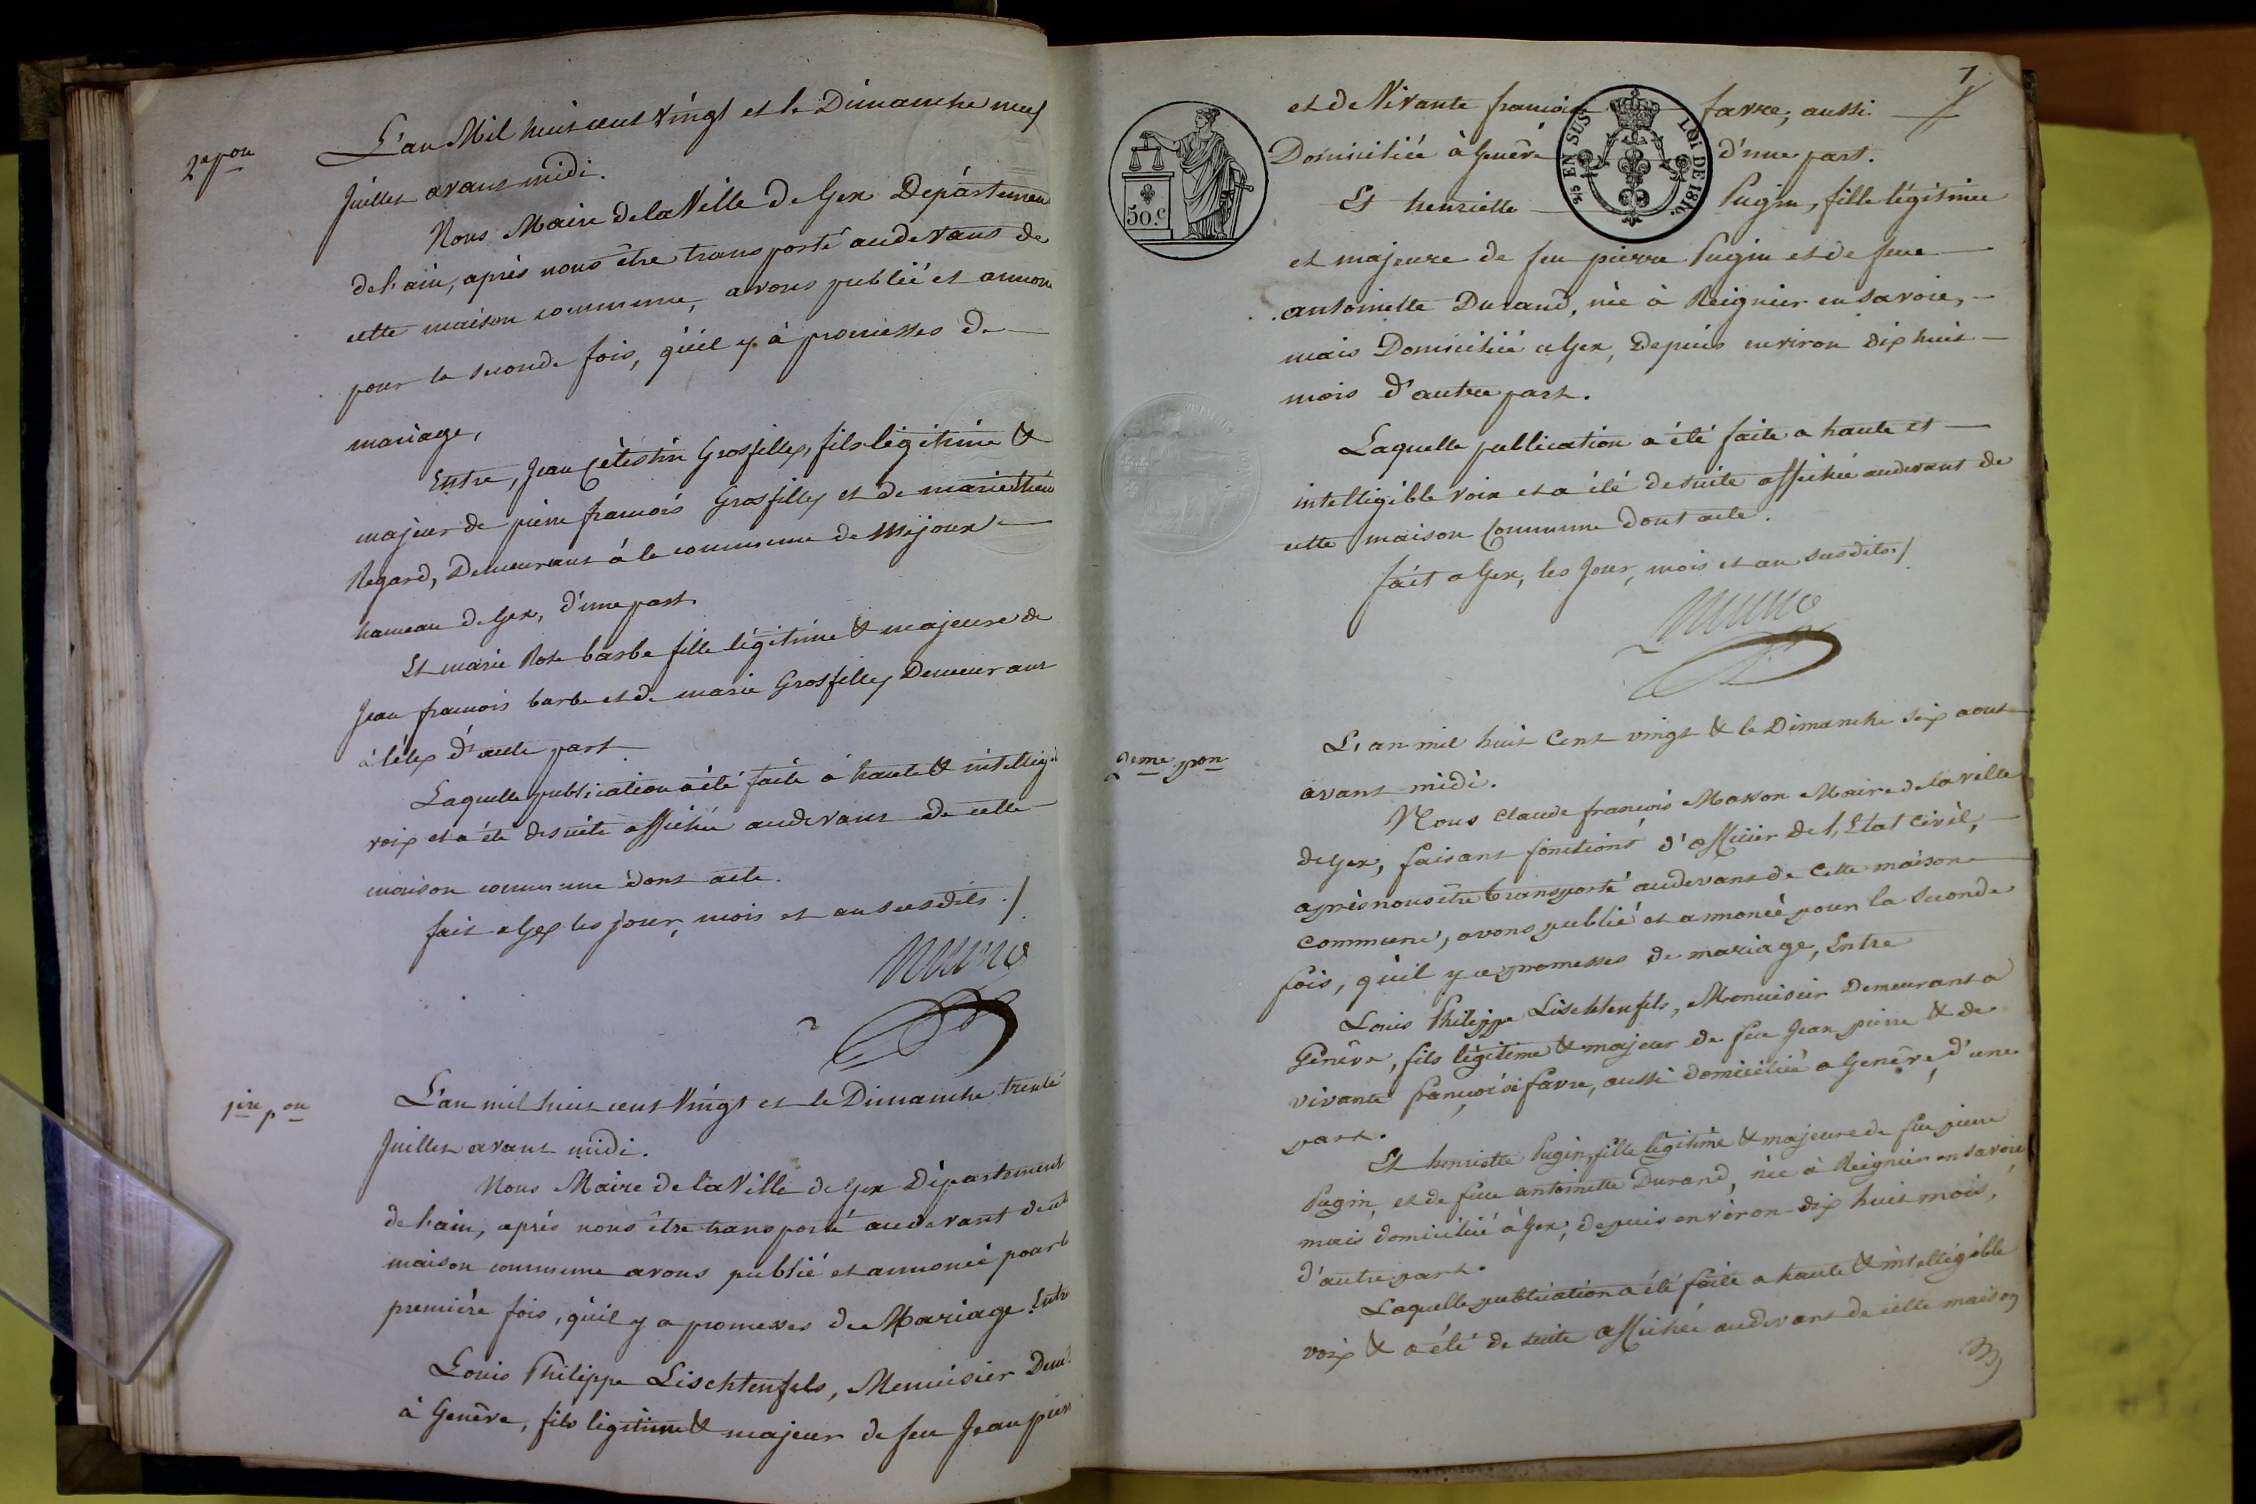 2e pon
L'an Mil huit cent vingt et le Dimanche neuf
Juillet avant midi.
Nous Maire de la Ville de Gex Département
de l'ain, après nous être transporté audevant de
cette maison commune, avons publié et annoncé
pour la seconde fois, qu'il y à promesses de
mariage,
Entre, Jean Célestin Grosfilley, fils légitime &
majeur de pierre françois Grosfilley et de marie
Regard, Demeurant à la commune de Mijoux
hameau de Gex, d'une part.
Et marie Rose barbe fille légitime & majeure de
Jean françois barbe et de marie Grosfilley Demeurant
à lélex d'aute part
Laquelle publication a été faite à haute & intelligi
voix et a été desuite affichée audevant de cette
maison commune dont acte.
fait a Gex les jour, mois et an susdits ./
1ere pon
L'an mil huit cent Vingt et le Dimanche trente
Juillet avant midi.
Nous Maire de la Ville de Gex Département
de l'ain, après nous être transporté audevant de
maison commune avons publié et annoncé pour l
première fois, qu'il y a promesses de Mariage Entre
Louis Philippe Lischtenfels, Menuisier Dem
à Genêve, fils légitime & majeur de feu Jean pierre
7
et de Vivante françoise favre, aussi
Domiciliée à Genêve d'une part.
50 c.
3/5 EN SUS LOI DE 1816.
Et henriette Pugin, fille légitime
et majeure de feu pierre Pugin et de feue
antoinette Durand, née à Reignier en Savoie,
mais Domiciliée a Gex, Depuis environ dix huit
mois d'autre part.
Laquelle publication a été faite a haute et
intelligible voix et a été de suite affichée audevant de
cette maison Commune dont acte.
fait a Gex, les Jour, mois et an susdits ./
2eme pon
L'an mil huit Cent vingt & le Dimanche six aout
avant midi.
Nous Claude françois Maire de la ville
de Gex, faisant fonctions d'officier de l'Etat Civil,
après nous être transporté audevant de Cette maison
Commune, avons publié et annoncé pour la seconde
fois, qu'il y a promesses de mariage, Entre
Louis Philippe Lischtenfels, Menuisier Demeurant a
Genêve, fils légitime & majeur de feu Jean pierre & de
vivante françoise favre, aussi domiciliée a Genêve, d'une
part.
Et henriette Pugin, fille légitime & majeure de feu pierre
Pugin, et de feue antoinette Durand, née à Reignier en Savoie
mais domiciliée à Gex, depuis environ dix huit mois,
d'autre part.
Laquelle publication a été faite a haute & intelligible
voix & a été de suite affichée audevant de cette maison